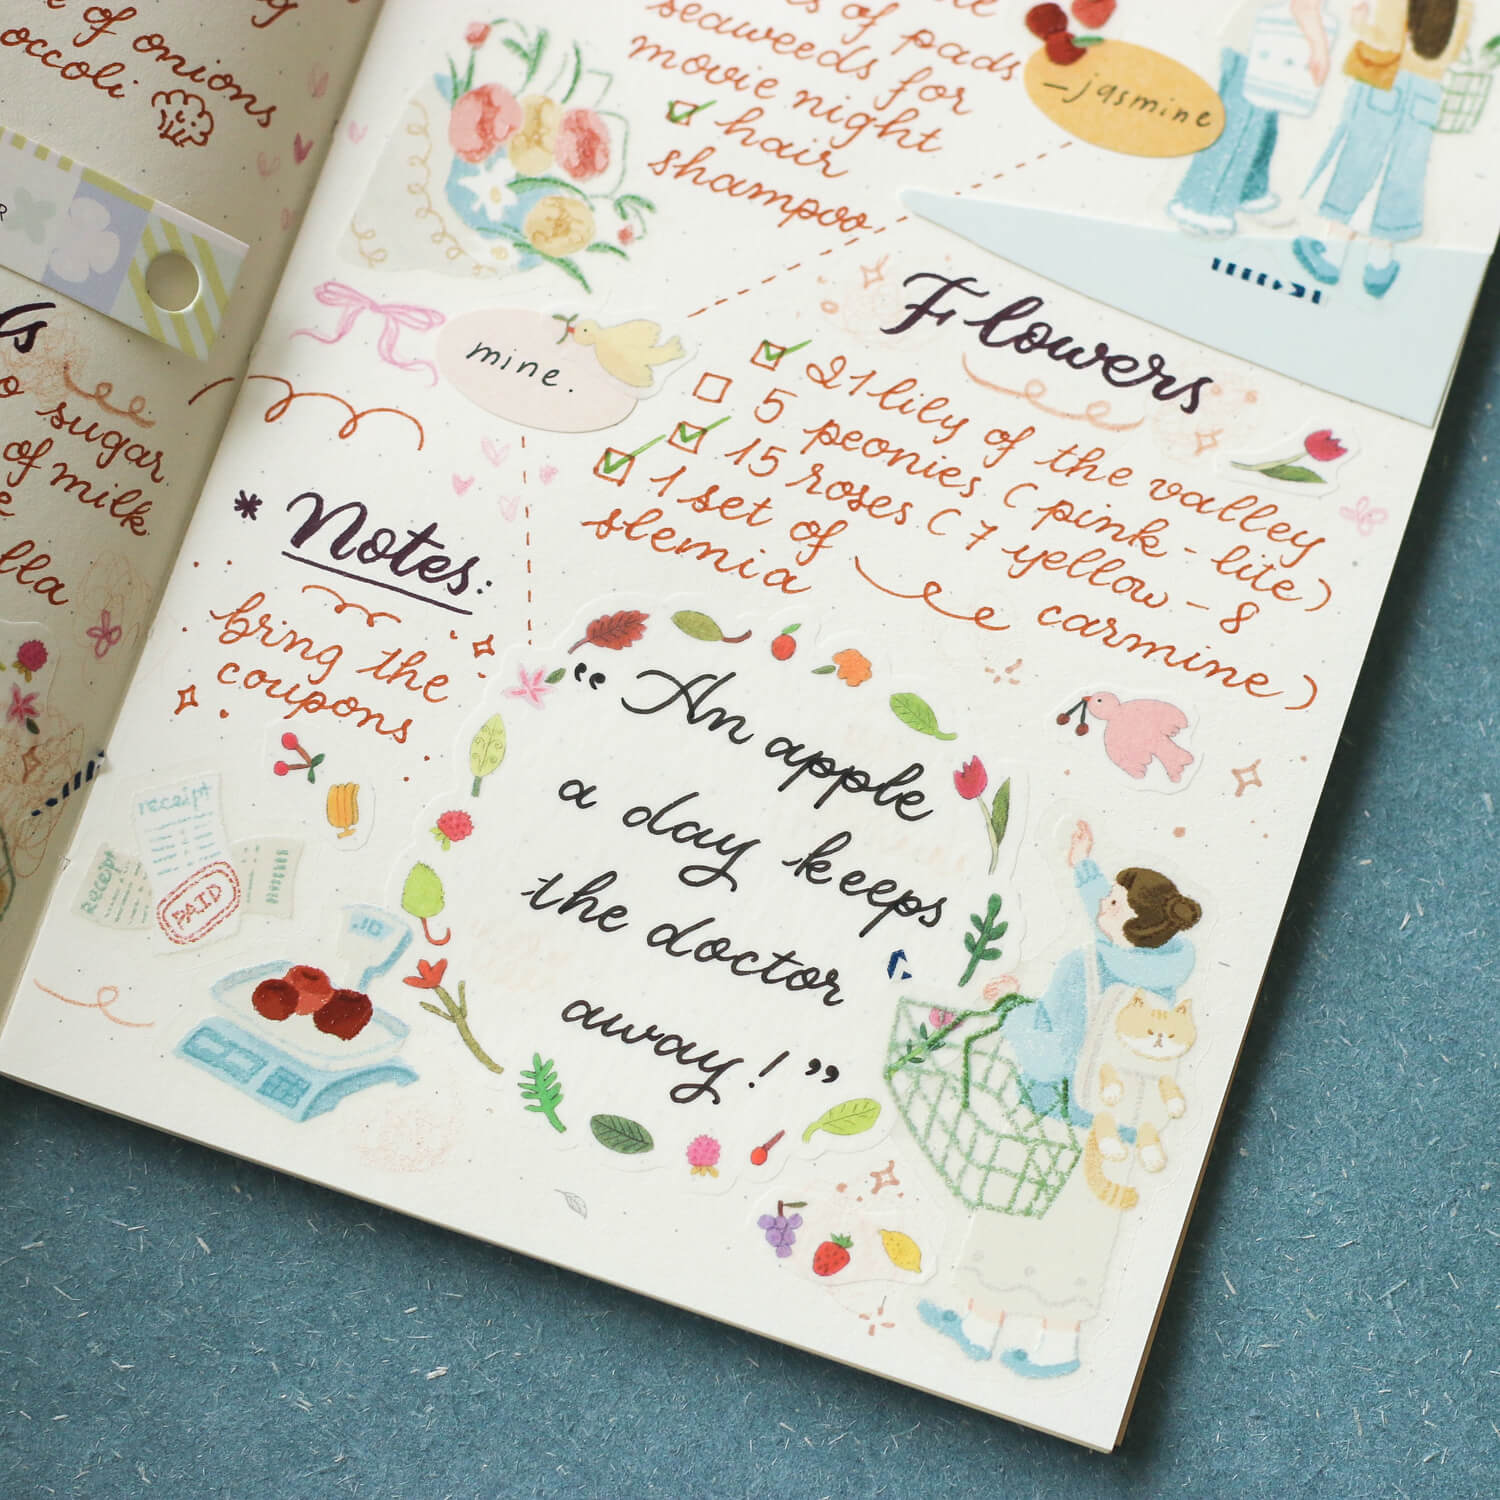 of onions
occoli
sugar
of milk
lla
seaweeds for
movie night
hair
shampoo
of pads
—jasmine
mine.
Flowers
21 lily of the valley
5 peonies (pink-lite)
15 roses (7 yellow-8
carmine)
1 set of
slemia
* Notes:
bring the
coupons
receipt
receipt
PAID
“An apple
a day keeps
the doctor
away!”